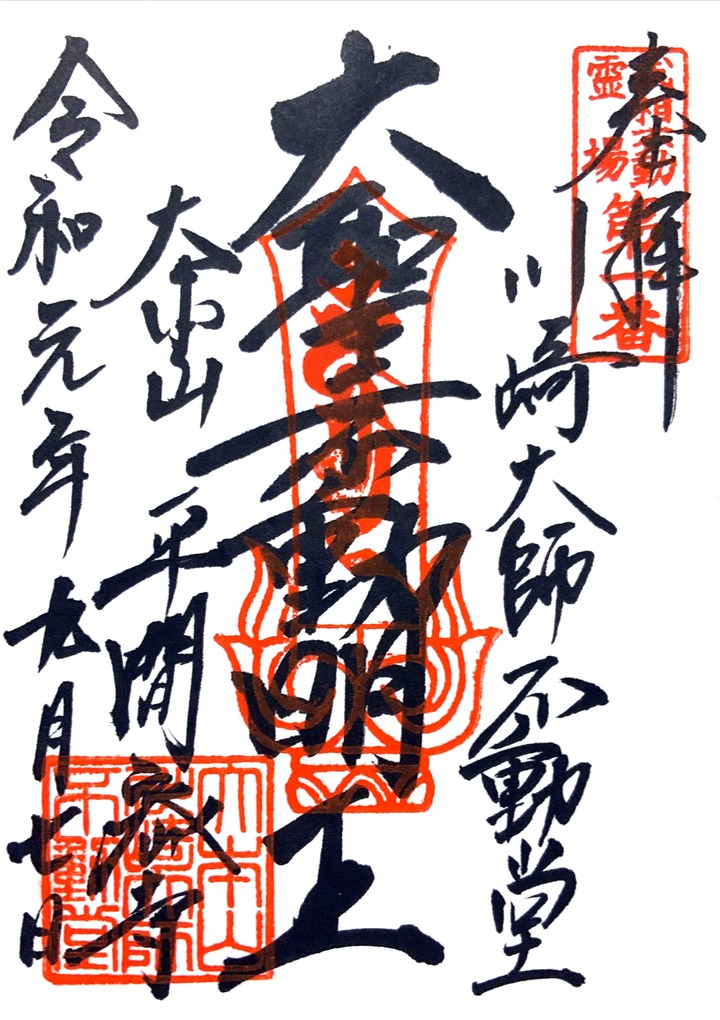 奉拝
武相不動
靈場
第一番
川崎大師不動堂
大聖不動明王
大本山 平間寺
大本山
川崎大師
不動堂
令和元年九月七日